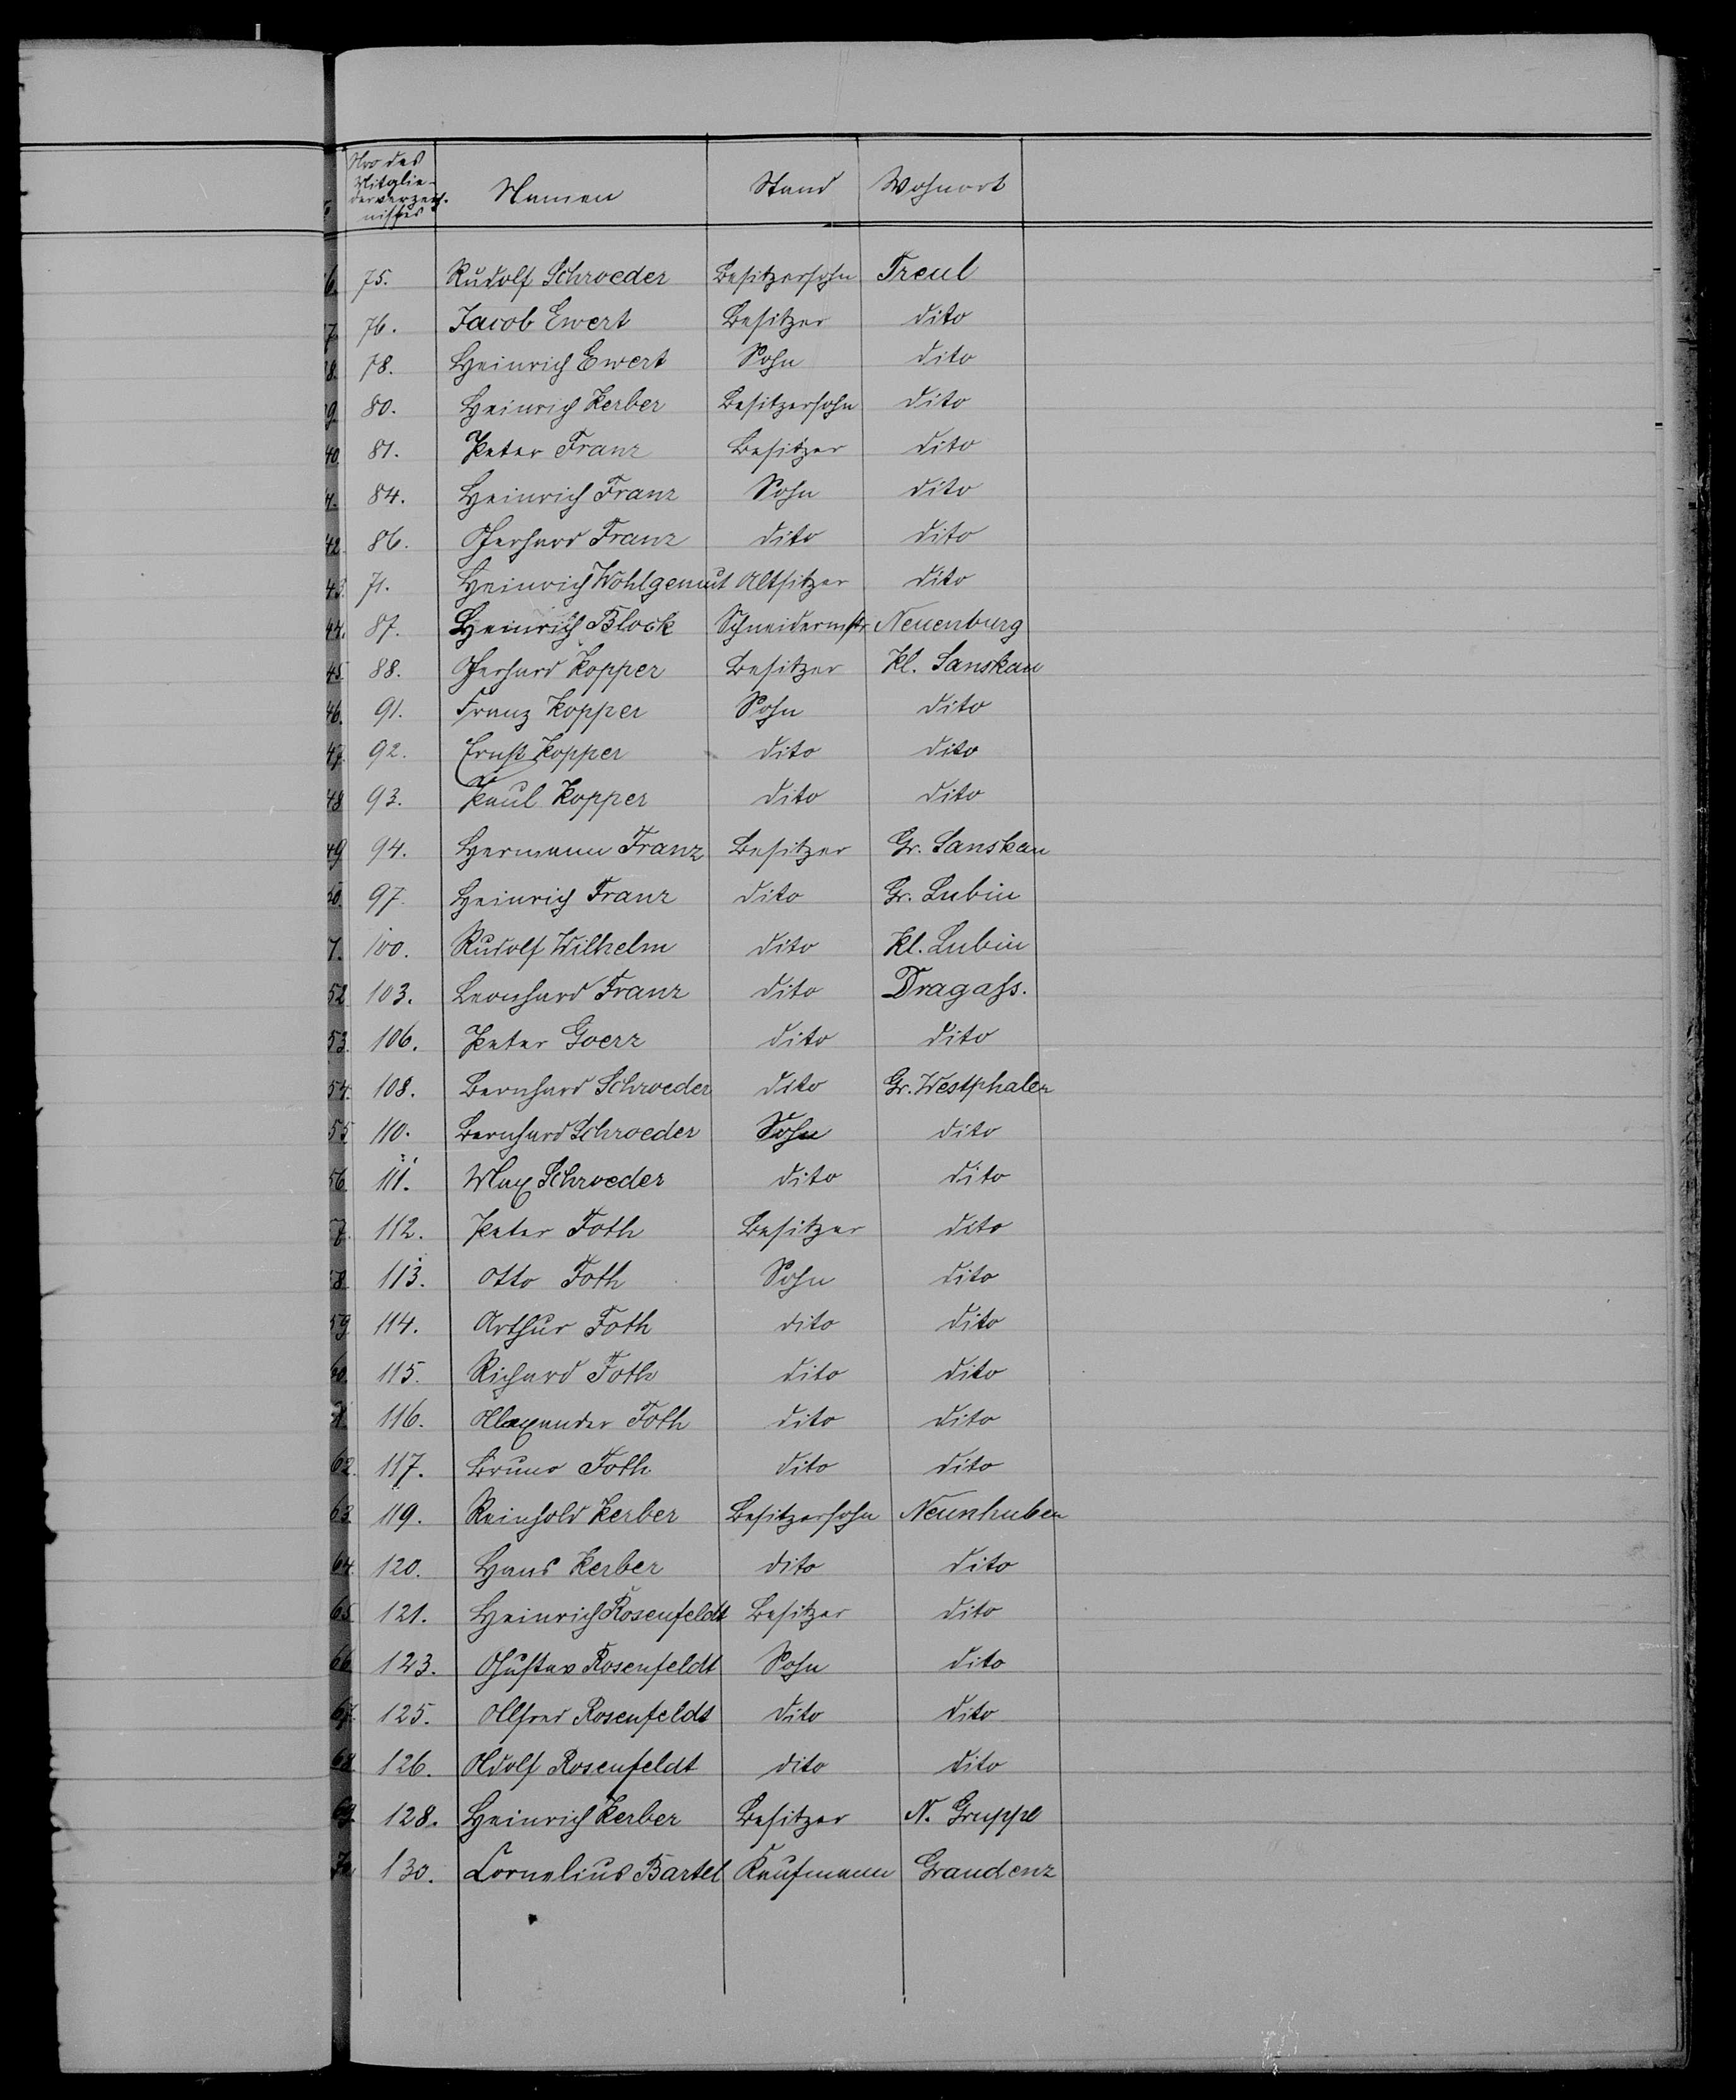 Nro des Mitglie-
derverzeich-
nisses Namen Stand Wohnort
75. Rudolf Schroeder Besitzersohn Treul
76. Jacob Ewert Besitzer dito
78. Heinrich Ewert Sohn dito
80. Heinrich Kerber Besitzersohn dito
40. 81. Peter Franz Besitzer dito
84. Heinrich Franz Sohn dito
42. 86. Gerhard Franz dito dito
43. 71. Heinrich Wohlgemut Altsitzer dito
44. 87. Heinrich Block Schneidermstr Neuenburg
45. 88. Gerhard Kopper Besitzer Kl. Sanskau
46. 91. Franz Kopper Sohn dito
47. 92. Ernst Kopper dito dito
48. 93. Paul Kopper dito dito
49. 94. Hermann Franz Besitzer Gr. Sanskau
50. 97. Heinrich Franz dito Gr. Lubin
100. Rudolf Wilhelm dito Kl. Lubin
52. 103. Leonhard Franz dito Dragass.
53. 106. Peter Goerz dito dito
54. 108. Bernhard Schroeder dito Gr. Westphalen
55. 110. Bernhard Schroeder Sohn dito
56. 111. Max Schroeder dito dito
57. 112. Peter Foth Besitzer dito
58. 113. Otto Foth Sohn dito
59. 114. Arthur Foth dito dito
60. 115. Richard Foth dito dito
116. Alexander Foth dito dito
62. 117. Bruno Foth dito dito
63. 119. Reinhold Kerber Besitzersohn Neunhuben
64. 120. Hans Kerber dito dito
65. 121. Heinrich Rosenfeldt Besitzer dito
66. 123. Gustav Rosenfeldt Sohn dito
67. 125. Alfred Rosenfeldt dito dito
68. 126. Adolf Rosenfeldt dito dito
69. 128. Heinrich Kerber Besitzer N. Gruppe
70. 130. Cornelius Bartel Kaufmann Graudenz